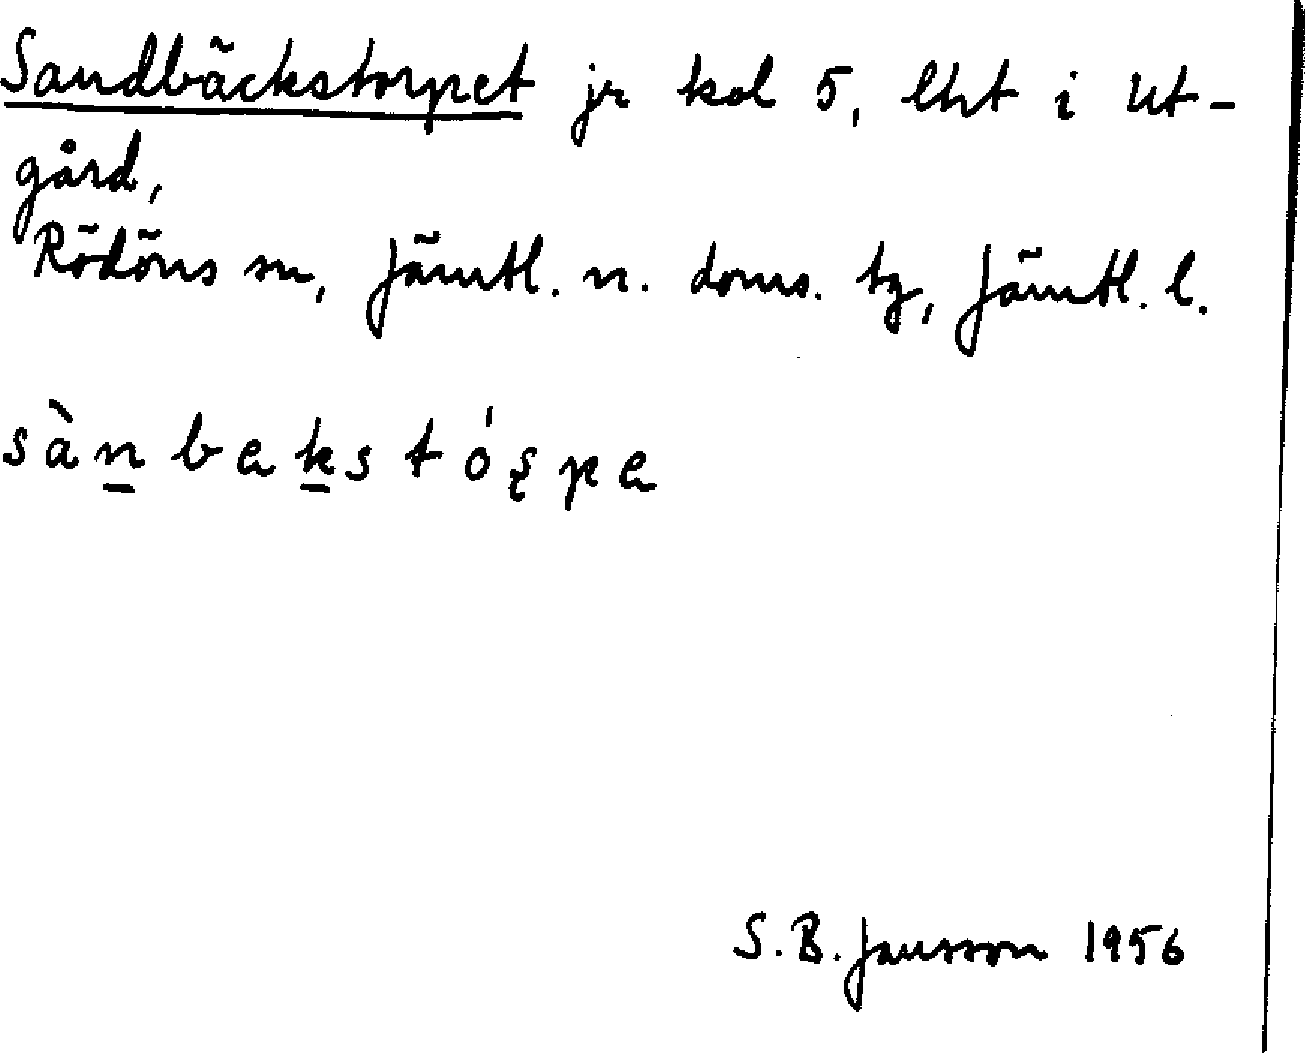 Sandbäckstorpet jr kol 5, lht i Ut-
gård,
Rödöns sn, Jämtl. n. doms. tg, Jämtl. l.
sàn̲bak̲stórpa
S.B. Jansson 1956